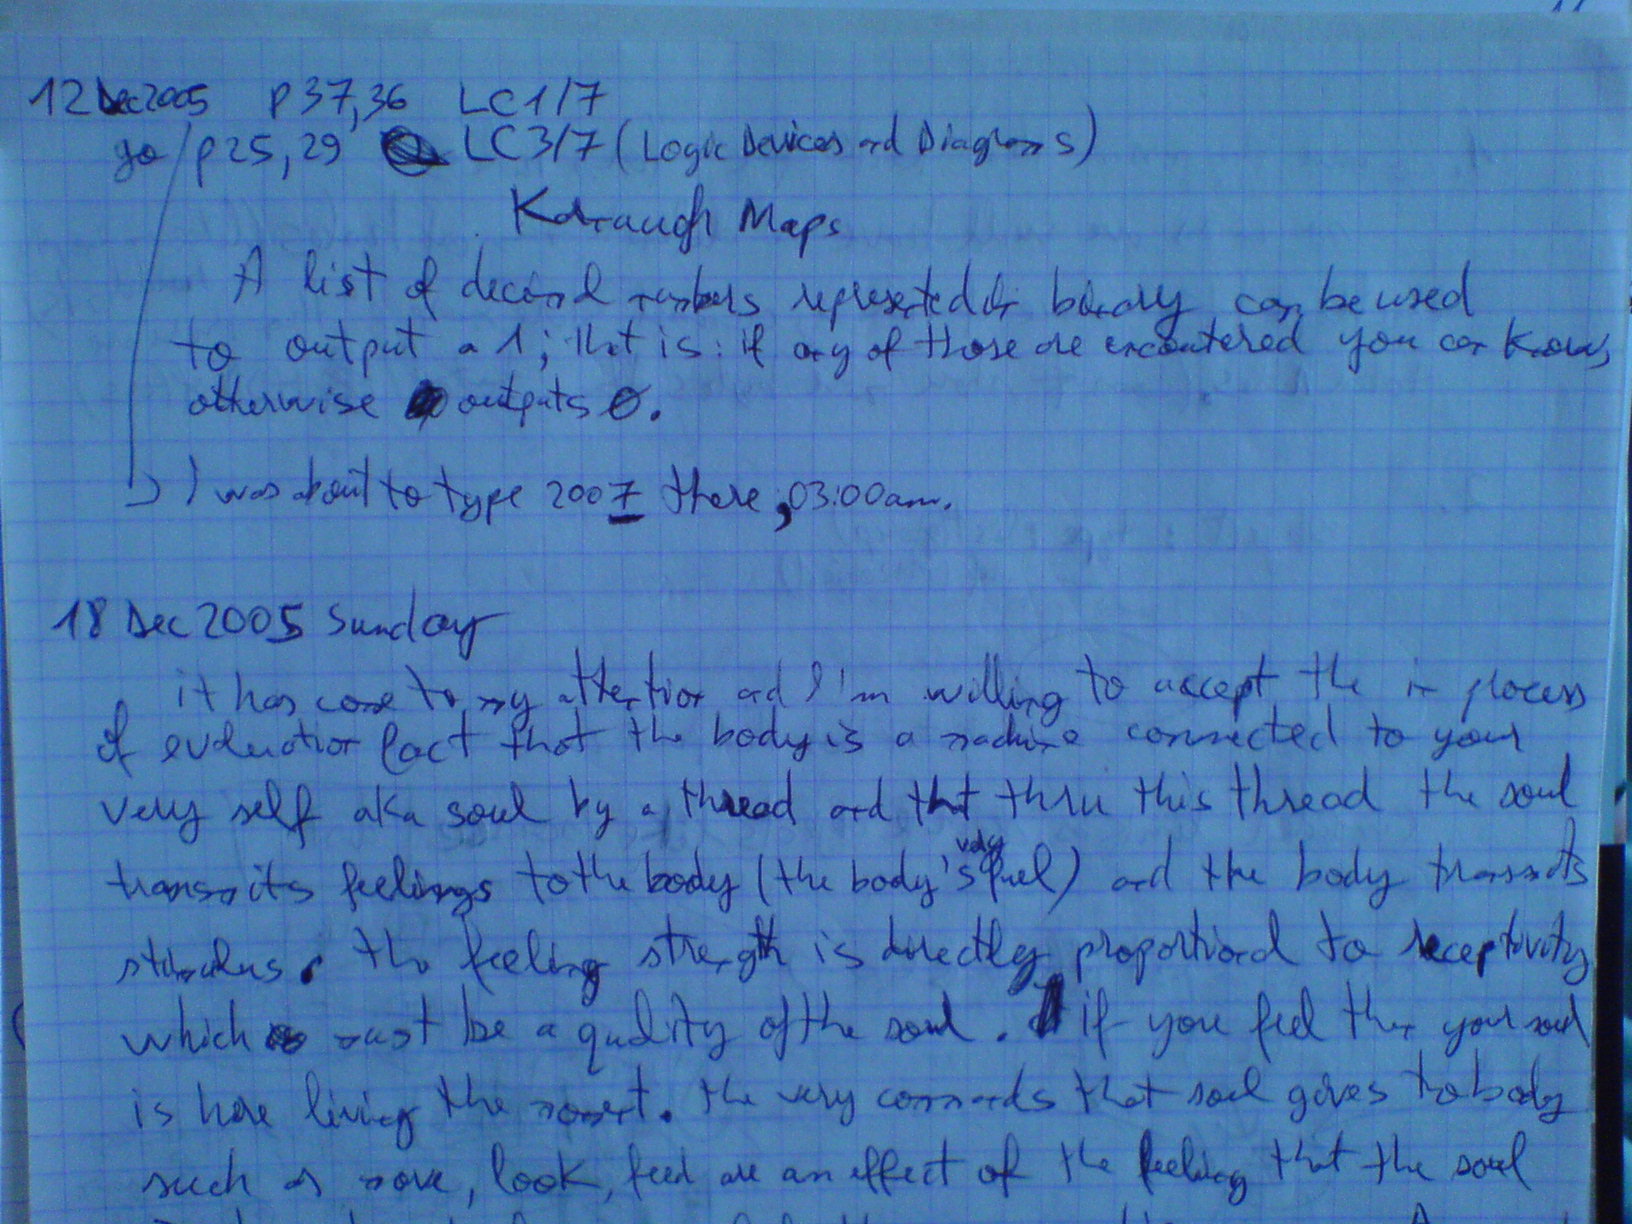 12 Dec 2005 p 37,36 LC 1/7
go p 25, 29 LC 3/7 (Logic Devices and Diagrams)
Karnaugh Maps
A list of decimal numbers represented in binary can be used
to output a 1; that is: if any of those are encountered you can know,
otherwise outputs 0.
I was about to type 2007 there, 03:00am.
18 Dec 2005 Sunday
it has come to my attention and I'm willing to accept the in process
of evaluation fact that the body is a machine connected to your
very self aka soul by a thread and that thru this thread the soul
transmits feelings to the body (the body's fuel) and the body transmits
stimulus. the feeling strength is directly proportional to receptivity
which must be a quality of the soul. if you feel then your soul
is here living the moment. the very commands that soul gives to body
such as move, look, feed are an effect of the feeling that the soul